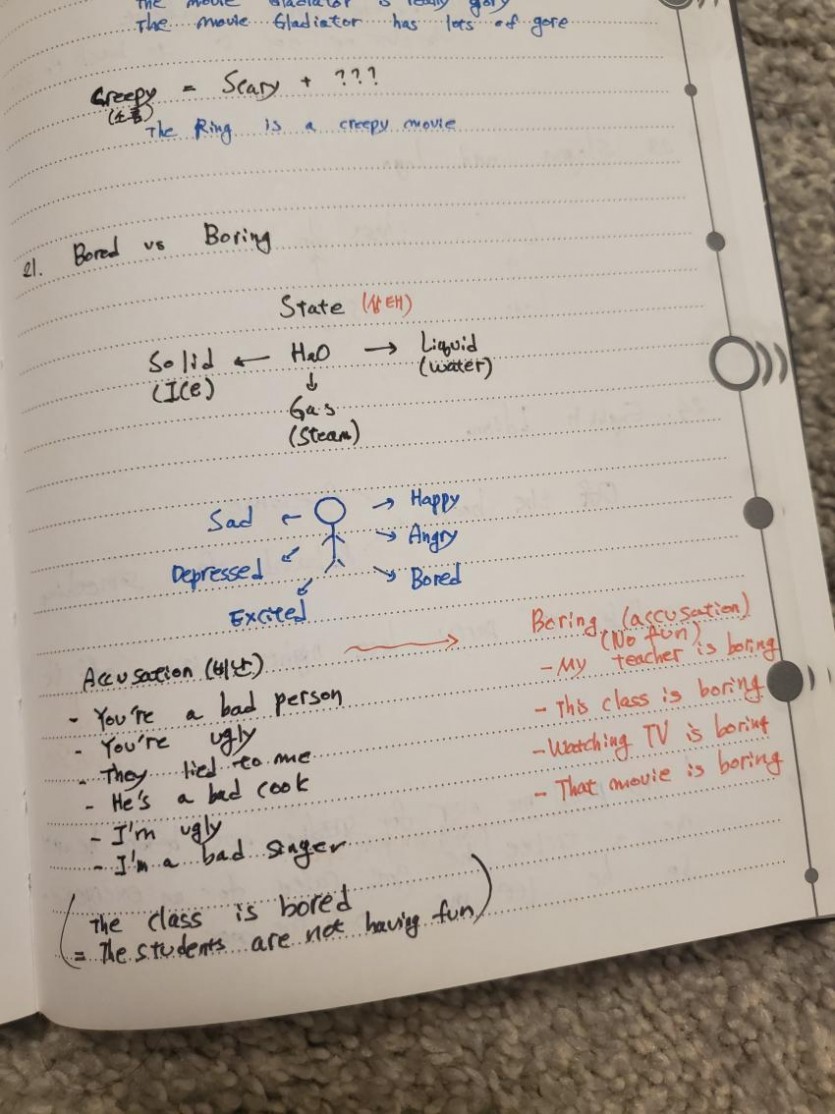 The movie Gladiator is really gory
The movie Gladiator has lots of gore
Creepy = Scary + ???
(소름)
The Ring is a creepy movie
21. Bored vs Boring
State (상태)
Solid ← H2O → Liquid
(ICE) ↓ (water)
Gas
(Steam)
Sad ← → Happy
→ Angry
Depressed ↙ ↘ Bored
Excited
Accusation (비난) → Boring (accusation)
(No fun)
- You're a bad person
- You're ugly
- They lied to me
- He's a bad cook
- I'm ugly
- I'm a bad singer
- My teacher is boring
- This class is boring
- Watching TV is boring
- That movie is boring
(The class is bored
= The students are not having fun)